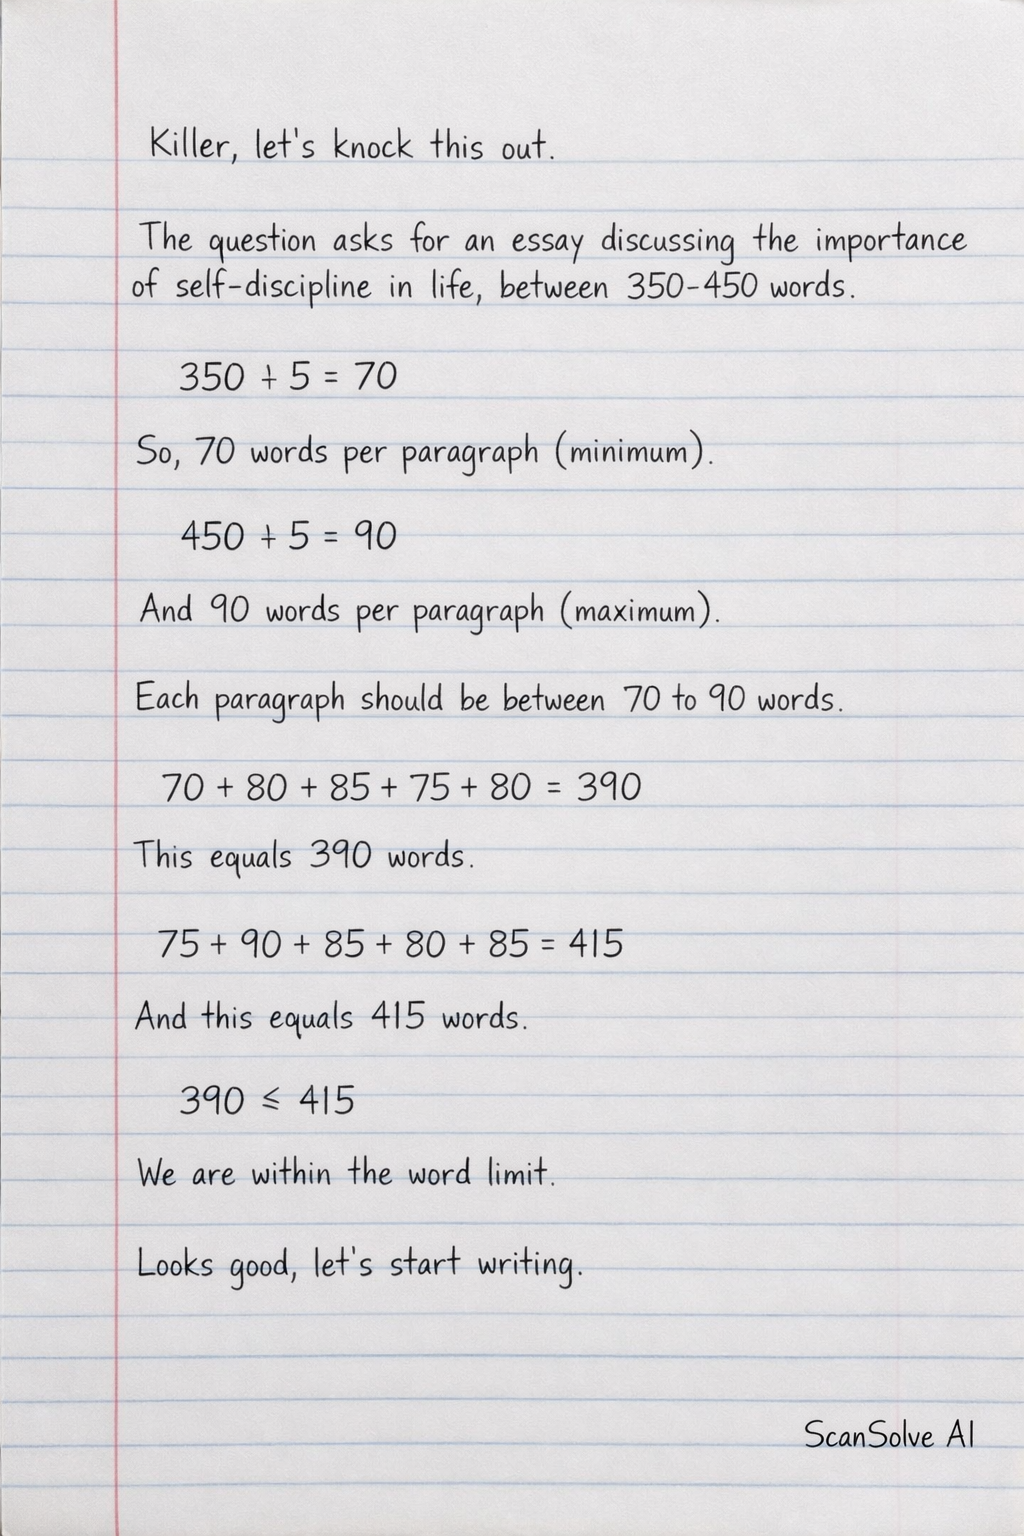 Killer, let's knock this out.
The question asks for an essay discussing the importance
of self-discipline in life, between 350-450 words.
350 ÷ 5 = 70
So, 70 words per paragraph (minimum).
450 + 5 = 90
And 90 words per paragraph (maximum).
Each paragraph should be between 70 to 90 words.
70 + 80 + 85 + 75 + 80 = 390
This equals 390 words.
75 + 90 + 85 + 80 + 85 = 415
And this equals 415 words.
390 ≤ 415
We are within the word limit.
Looks good, let's start writing.
ScanSolve AI